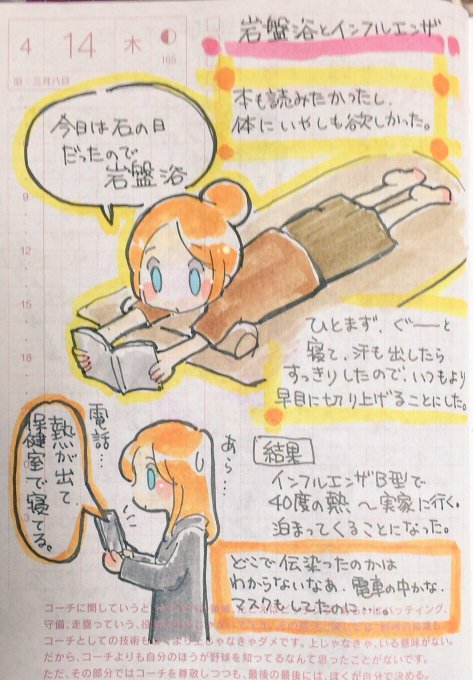 4 14 木
105
旧:三月八日
岩盤浴とインフルエンザ
本も読みたかったし、
体にいやしも欲しかった。
今日は石の日
だったので
岩盤浴
9
12
15
18
ひとまず、ぐーーと
寝て、汗も出したら
すっきりしたので、いつもより
早目に切り上げることにした。
電話…
熱が出て
保健室で寝てる。
あら…
結果
インフルエンザB型で
40度の熱 〜実家に行く。
泊まってくることになった。
どこで伝染ったのかは
わからないなあ、電車の中かな、
マスクもしてたのに…。
コーチに関していうと、
バッティング、
守備、走塁っていう、
コーチとしての技術も
上じゃなきゃダメです。上じゃなきゃ、いる意味がない。
だから、コーチよりも自分のほうが野球を知ってるなんて思ったことがないです。
ただ、その部分ではコーチを尊敬しつつも、最後の最後には、ぼくが自分で決める。